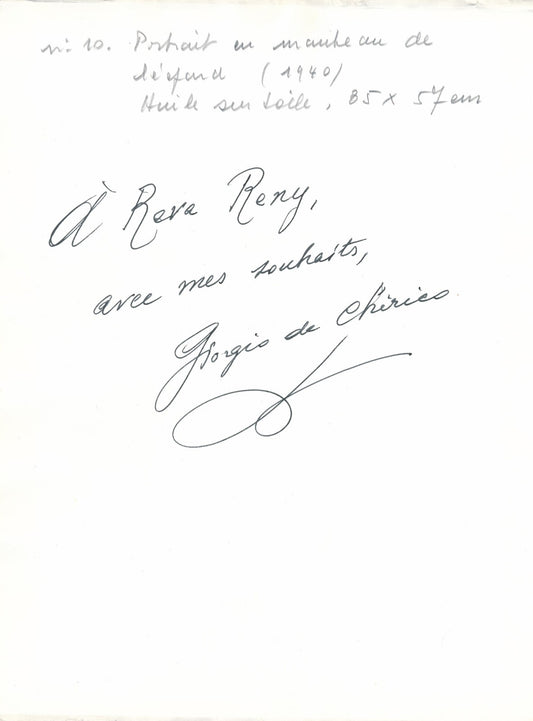 n: 10. Portrait en manteau de
léopard (1940)
Huile sur toile, 85 x 57 cm
À Reva Remy,
avec mes souhaits,
Giorgio de Chirico